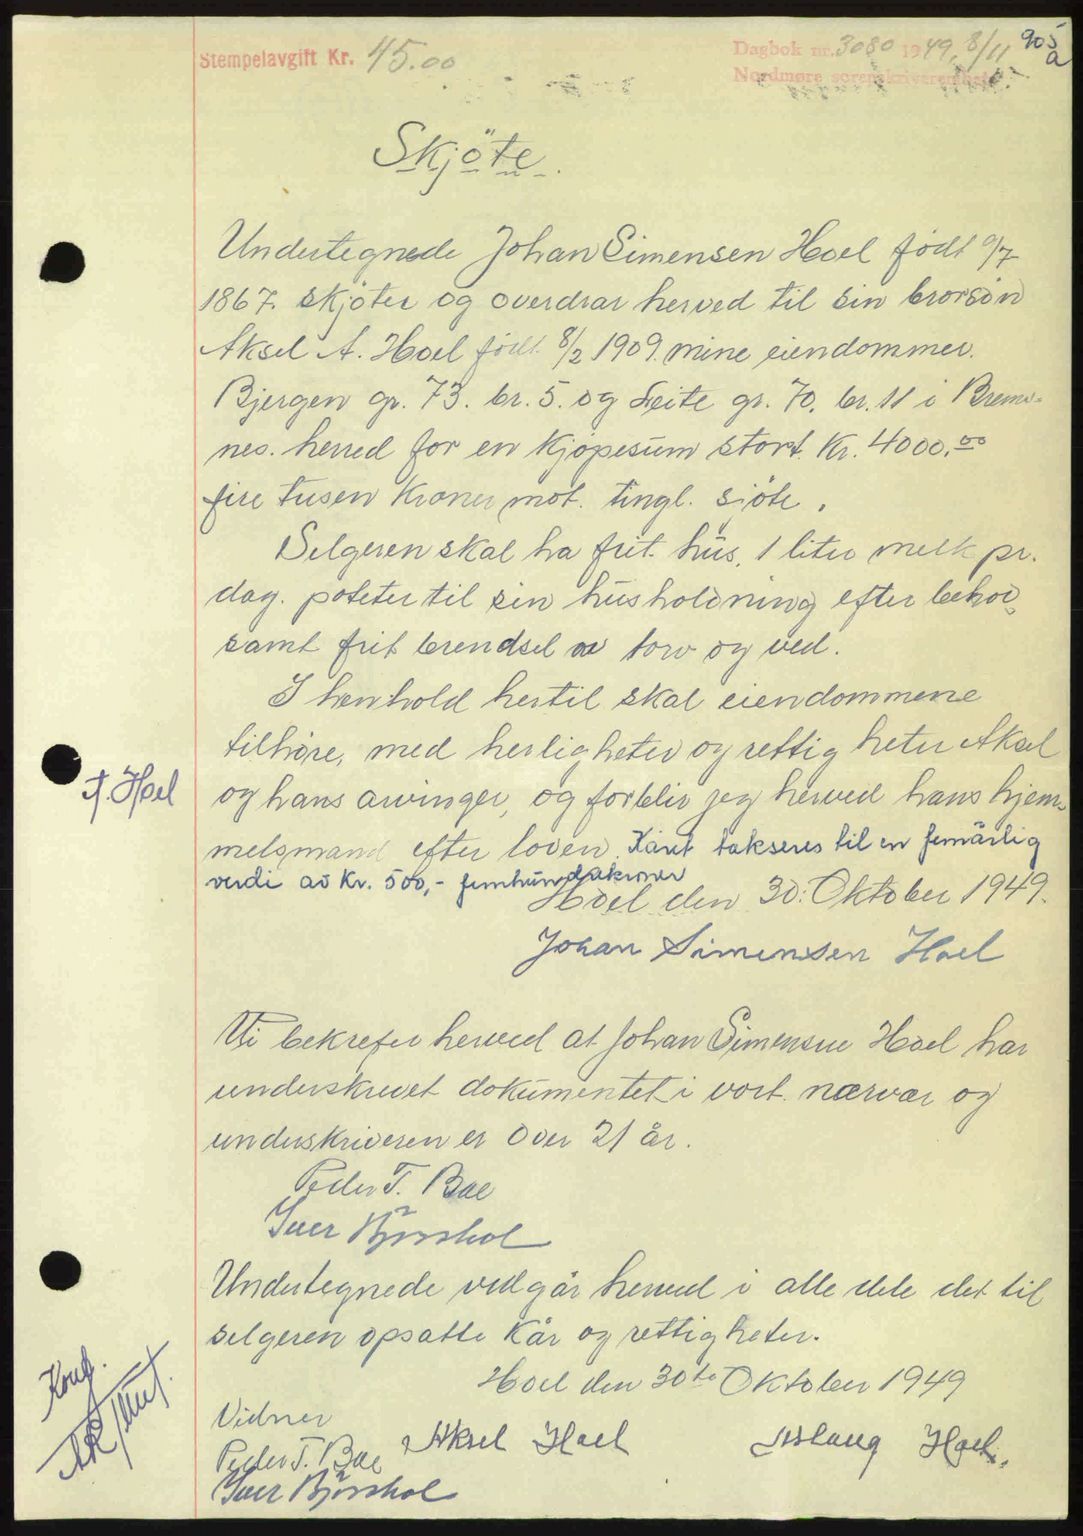 Stempelavgift Kr. 45.00
Dagbok nr. 3080 1949, 8/11
905 a
Nordmøre sorenskriverembete
Skjöte.
Undertegnede Johan Simensen Hoel födt 9/7
1867. skjöter og overdrar herved til sin brorsön
Aksel A. Hoel födt 8/2 1909. mine eiendommer.
Bjergen gr. 73. br. 5. og Leite gr. 70. br. 11 i Brems-
nes. herred for en kjöpesum stort. Kr. 4000.00
fire tusen kroner mot. tingl. sjöte.
Selgeren skal ha frit. hus, 1 liter melk pr.
dag. poteter til sin husholdning efter behov
samt frit brendsel av torv og ved.
I henhold hertil skal eiendommene
tilhöre, med herligheter og rettigheter Aksel
A. Hoel
og hans arvinger, og forblir jeg herved hans hjem-
melsmand efter loven. Kåret takseres til en femårlig
verdi av Kr. 500,- femhundrekroner
Hoel den 30. Oktober 1949.
Johan Simensen Hoel
Vi bekrefter herved at Johan Simensen Hoel har
underskrevet dokumentet i vort nærvær og
underskriveren er over 21 år.
Peder T. Bae
Iver Bjørshol
Undertegnede vedgår herved i alle dele det til
selgeren opsatte kår og rettigheter.
Hoel den 30te Oktober 1949
Konf.
Vidner
Aksel Hoel Aslaug Hoel.
Peder T. Bae
Iver Bjørshol